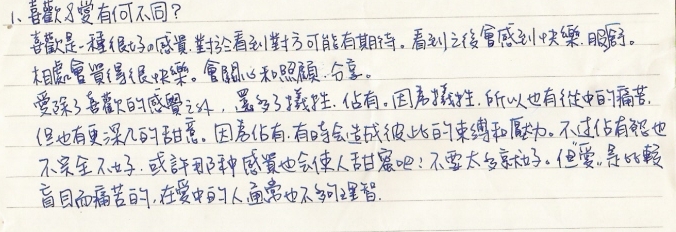 1、喜歡与愛有何不同?
喜歡是一種很好的感覺,對於看到對方可能有期待。看到之後會感到快樂、眼
相處會覺得很快樂。會關心和照顧、分享。
愛除了喜歡的感覺之外,還多了犧牲、佔有。因為犧牲,所以也有從中的痛苦,
但也有更深入的甜意。因為佔有,有時會造成彼此的束縛和壓力。不过佔有慾也
不完全不好,或許那种感覺也会使人甜蜜吧!不要太多就好。但“愛”是比較
盲目而痛苦的,在愛中的人通常也不夠理智.